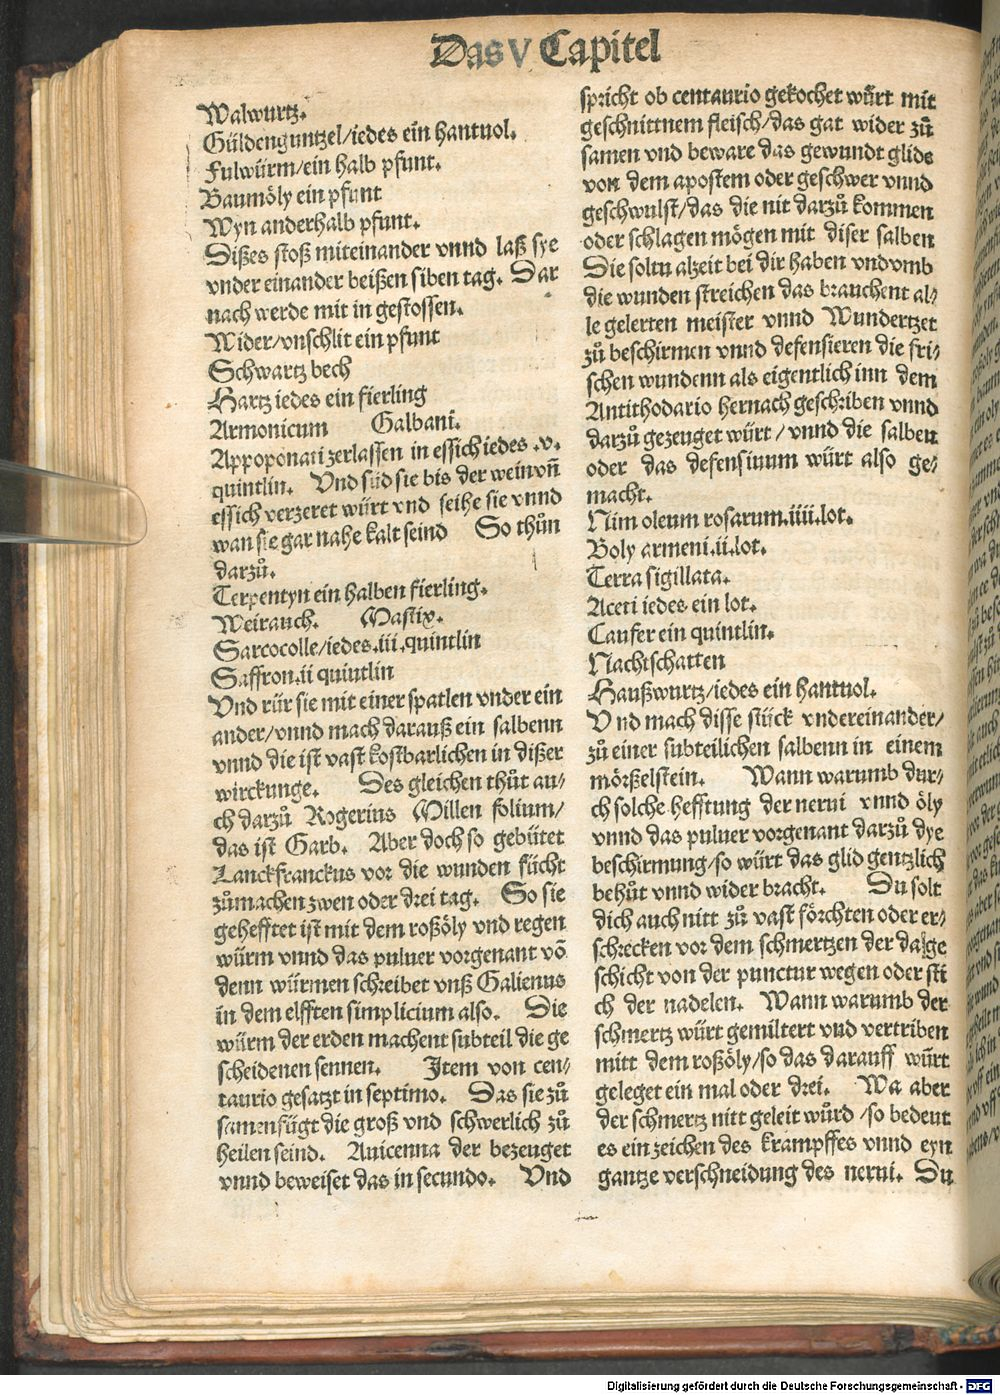 Das V Capitel
Walwurtz.
Güldenguntzel/iedes ein hantuol.
Fulwürm/ein halb pfunt.
Baumöly ein pfunt
Wyn anderhalb pfunt.
Dißes stoß miteinander vnnd laß sye
vnder einander beißen siben tag. Dar
nach werde mit in gestossen.
Wider/vnschlit ein pfunt
Schwartz bech
Hartz iedes ein fierling
Armonicum Galbani.
Appoponati zerlassen in essich iedes .v.
quintlin. Vnd süd sie bis der wein vñ
essich verzeret würt vnd seihe sie vnnd
wan sie gar nahe kalt seind So thůn
darzů.
Terpentyn ein halben fierling.
Weirauch. Mastix.
Sarcocolle/iedes .iii. quintlin
Saffron .ii quintlin
Vnd rür sie mit einer spatlen vnder ein
ander/vnnd mach darauß ein salbenn
vnnd die ist vast kostbarlichen in dißer
wirckunge. Des gleichen thůt au⸗
ch darzů Rogerius Millen folium/
das ist Garb. Aber doch so gebütet
Lanckfranckus vor die wunden fücht
zůmachen zwen oder drei tag. So sie
gehefftet ist mit dem roßöly vnd regen
würm vnnd das puluer vorgenant võ
denn würmen schreibet vnß Galienus
in dem elfften simplicium also. Die
würm der erden machent subteil die ge
scheidenen sennen. Item von cen⸗
taurio gesatzt in septimo. Das sie zů
samenfügt die groß vnd schwerlich zů
heilen seind. Auicenna der bezeuget
vnnd beweiset das in secundo. Vnd
spricht ob centaurio gekochet wůrt mit
geschnittnem fleisch/das gat wider zů
samen vnd beware das gewundt glide
von dem apostem oder geschwer vnnd
geschwulst/das die nit darzů kommen
oder schlagen mögen mit diser salben
Die soltu alzeit bei dir haben vnd vmb
die wunden streichen das brauchent al⸗
le gelerten meister vnnd Wundertzet
zů beschirmen vnnd defensieren die fri⸗
schen wundenn als eigentlich inn dem
Antithodario hernach geschriben vnnd
darzů gezeuget würt/vnnd die salben
oder das defensiuum würt also ge⸗
macht.
Nim oleum rosarum .iiii. lot.
Boly armeni .ii. lot.
Terra sigillata.
Aceti iedes ein lot.
Caufer ein quintlin.
Nachtschatten
Haußwurtz/iedes ein hantuol.
Vnd mach disse stück vndereinander/
zů einer subteilichen salbenn in einem
mörßelstein. Wann warumb dur⸗
ch solche hefftung der nerui vnnd öly
vnnd das puluer vorgenant darzů dye
beschirmung/so würt das glid gentzlich
behůt vnnd wider bracht. Du solt
dich auch nitt zů vast förchten oder er⸗
schrecken vor dem schmertzen der da ge
schicht von der punctur wegen oder sti
ch der nadelen. Wann warumb der
schmertz würt gemiltert vnd vertriben
mitt dem roßöly/so das darauff wůrt
geleget ein mal oder drei. Wa aber
der schmertz nitt geleit wůrd/so bedeut
es ein zeichen des krampffes vnnd eyn
gantze verschneidung des nerui. Du
Digitalisierung gefördert durch die Deutsche Forschungsgemeinschaft - DFG